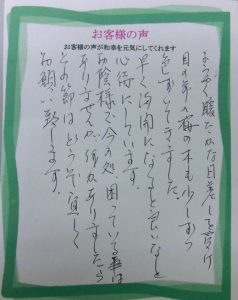 お客様の声
お客様の声が和幸を元気にしてくれます
ようやく暖かな日差しを受け
目の前の梅の木も少しずつ
色づいてきました。
早く満開になると良いなと
心待にしています。
お陰様で今の処困っている事は
ありませんが、何かありましたら
その節はどうぞ宜しく
お願い致します。